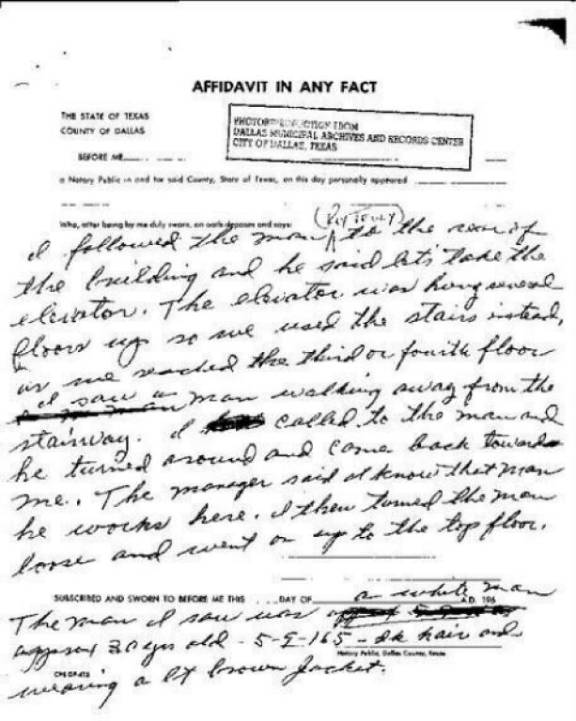 AFFIDAVIT IN ANY FACT
THE STATE OF TEXAS
COUNTY OF DALLAS
DALLAS MUNICIPAL ARCHIVES AND RECORDS CENTER
CITY OF DALLAS, TEXAS
BEFORE ME,
a Notary Public in and for said County, State of Texas, on this day personally appeared
Who, after being by me duly sworn, on oath deposes and says:
(Roy Truly)
I followed the man to the rear of
the building and he said let's take the
elevator. The elevator was hung several
floors up so we used the stairs instead,
as we reached the third or fourth floor
I saw a man walking away from the
stairway. I called to the man and
he turned around and came back toward
me. The manager said I know that man
he works here. I then turned the man
loose and went on up to the top floor.
SUBSCRIBED AND SWORN TO BEFORE ME THIS DAY OF A.D. 196
a white man
The man I saw was
approx 30 yrs old - 5-9-165 - dk hair and
Notary Public, Dallas County, Texas
wearing a lt brown jacket.